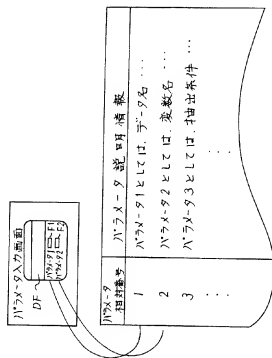 パラメータ入力画面
DF
パラメータ1 F1
パラメータ2 F2
パラメータ相対番号
パラメータ説明情報
1 パラメータ1としては、データ名…
2 パラメータ2としては、変数名…
3 パラメータ3としては、抽出条件…